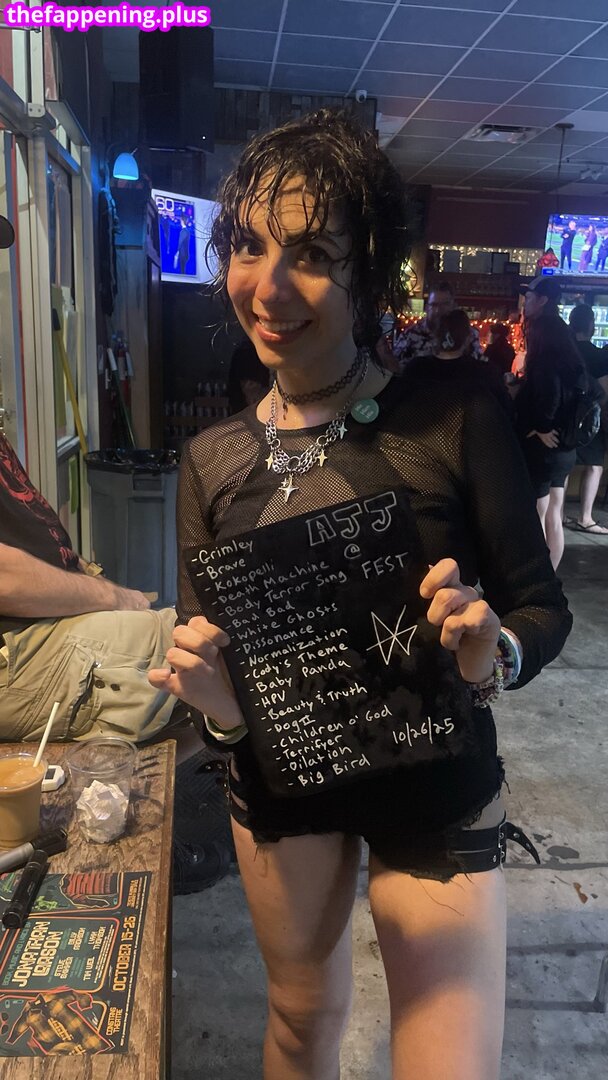 thefappening.plus
AJJ
@
FEST
-Grimley
-Brave
-Kokopelli
-Death Machine
-Body Terror Song
-Bad Bad
-White Ghosts
-Dissonance
-Normalization
-Cody's Theme
-Baby Panda
-HPV
-Beauty & Truth
-Dog II
-Children o' God
-Terrifyer
-Dilation
-Big Bird
10/26/25
JONATHAN
OCTOBER 15-26